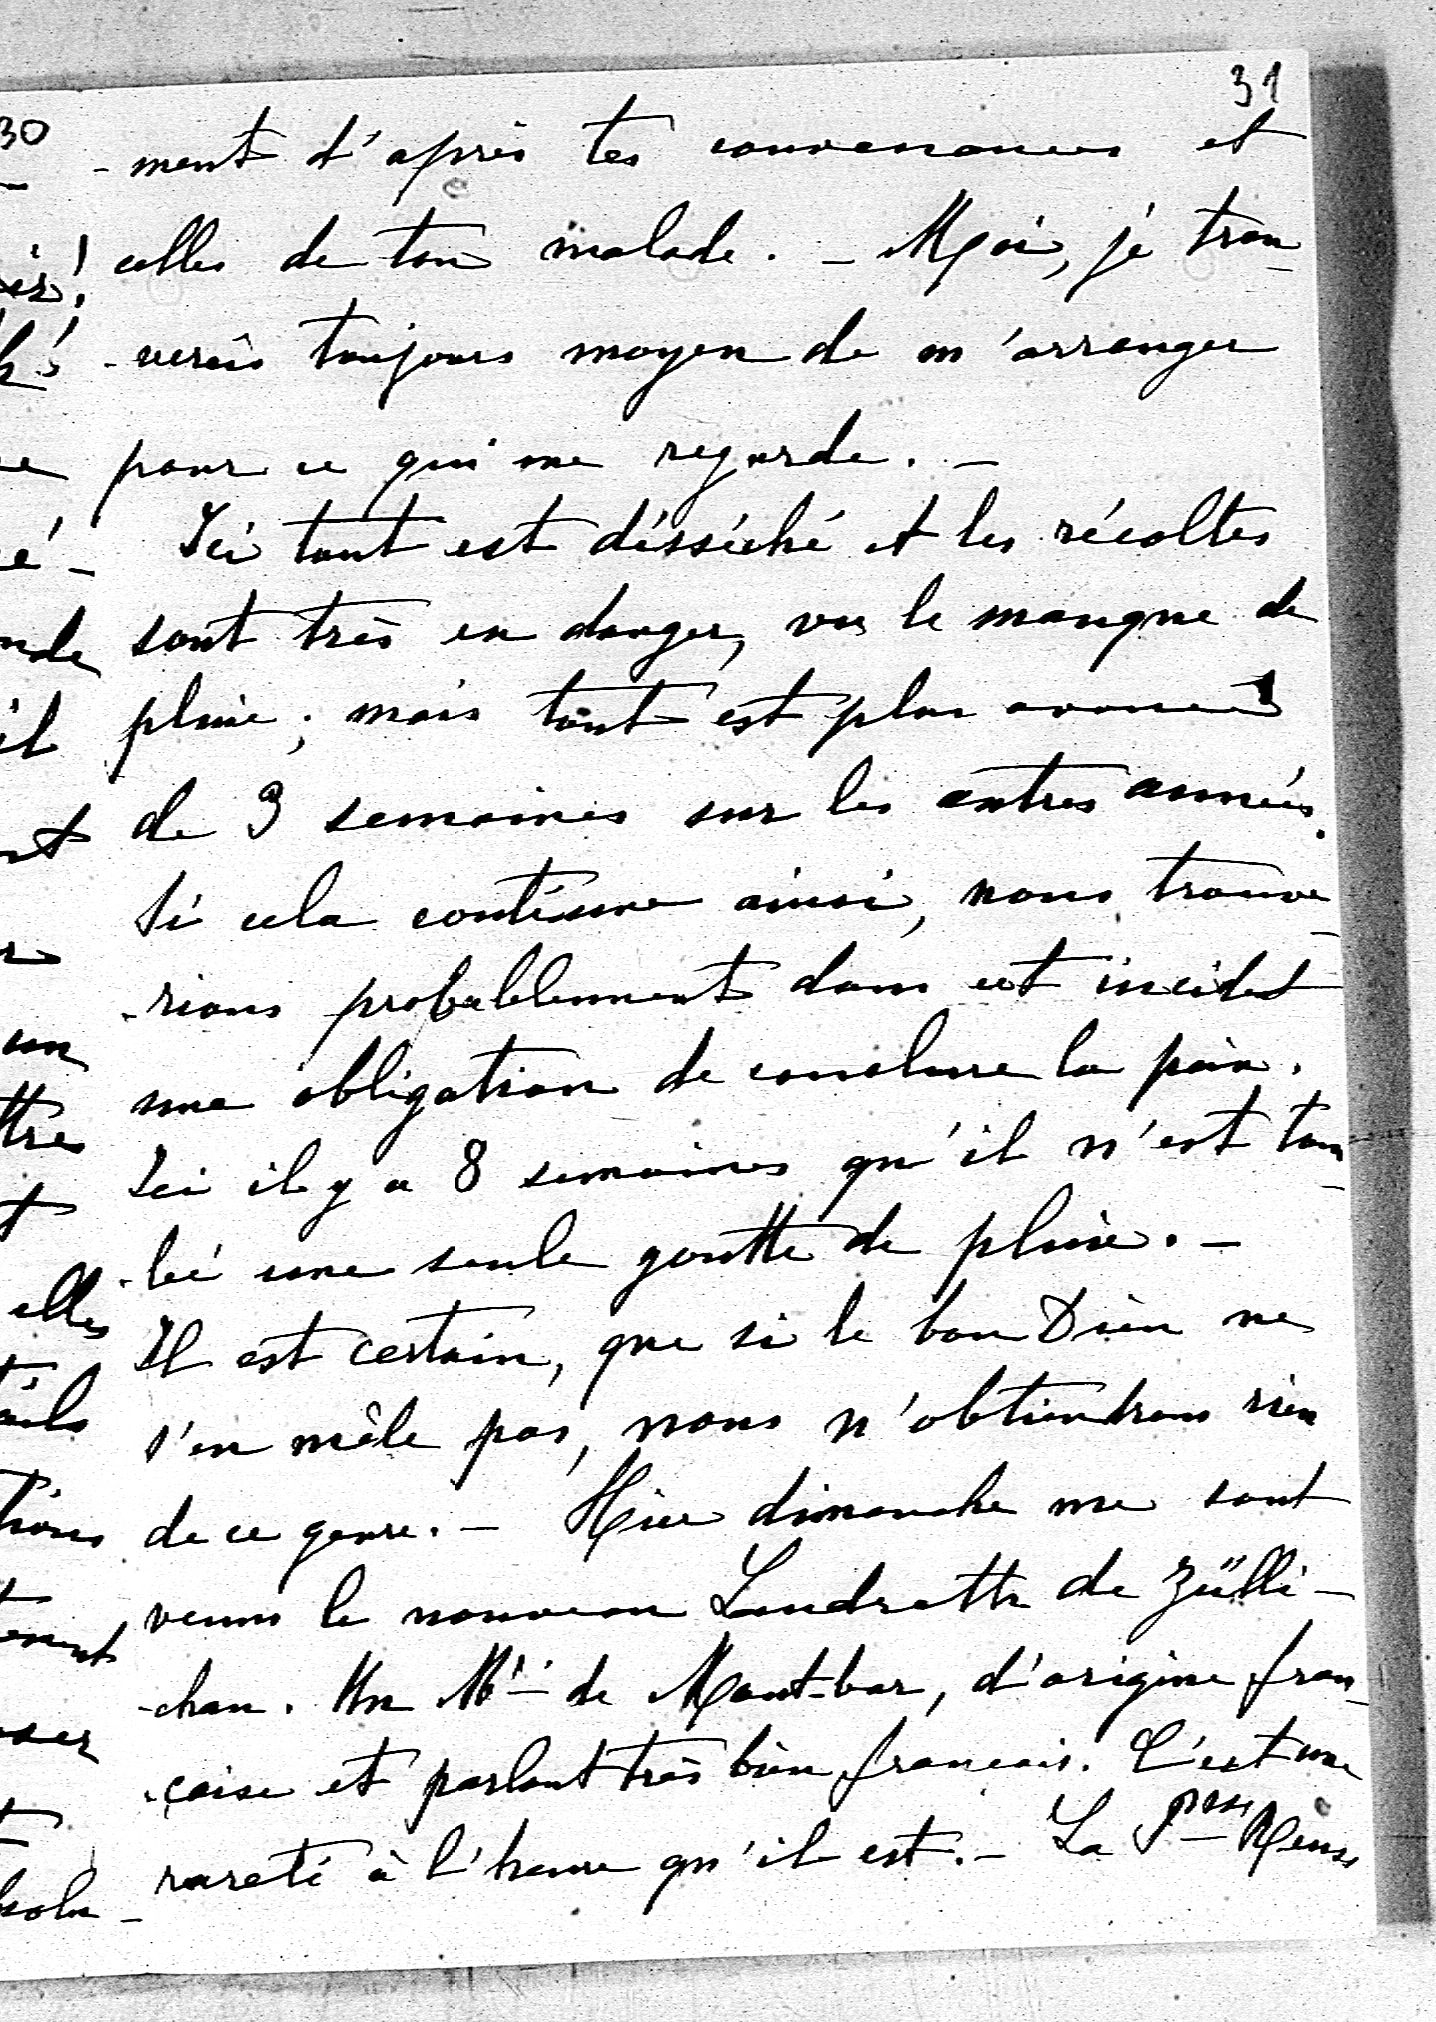 31
-ment d'après tes convenances et
celles de ton malade. - Moi, je trou-
-verais toujours moyen de m'arranger
pour ce qui me regarde. -
Ici tout est désséché et les récoltes
sont très en danger, vu le manque de
pluie ; mais tout est plus avancé
de 3 semaines sur les autres années.
Si cela continue ainsi, nous trouve-
-rions probablement dans cet incident
une obligation de conclure la paix.
Ici il y a 8 semaines qu'il n'est tom-
-bé une seule goutte de pluie. -
Il est certain, que si le bon Dieu ne
s'en mêle pas, nous n'obtiendrons rien
de ce genre. - Hier dimanche me sont
venus le nouveau Landrath de Zülli-
-chau. Un Mr de Mont-bar, d'origine fran-
-çaise et parlant très bien francais. C'est une
rareté à l'heure qu'il est. - La Psse Reuss
30
elles